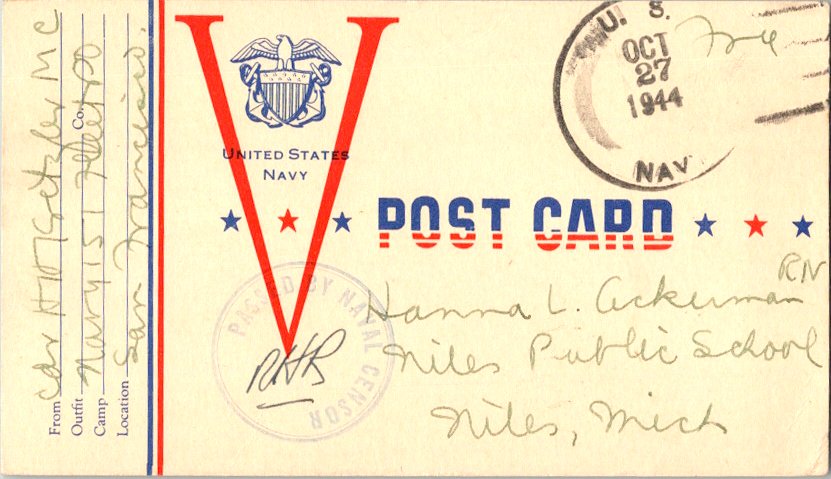 From Cdr H W Getzler MC
Outfit Navy 151 Fleet PO Co.
Camp
Location San Francisco.
UNITED STATES
NAVY
POST CARD
U. S.
OCT
27
1944
NAVY
Free
PASSED BY NAVAL CENSOR
RHR
Hanna L. Ackerman RN
Niles Public School
Niles, Mich